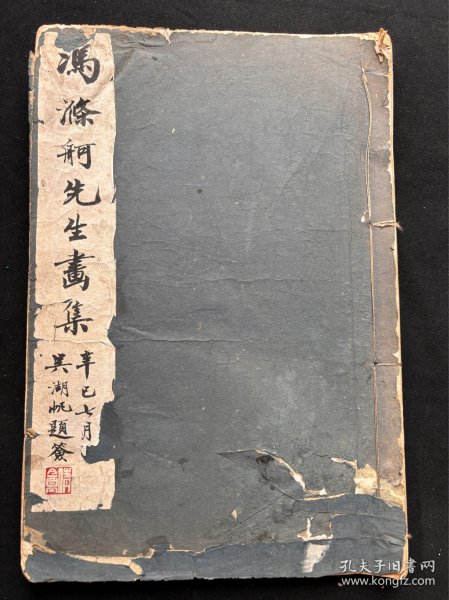 馮滌舸先生畫集
辛巳七月
吳湖帆題簽
孔夫子旧书网
www.kongfz.com